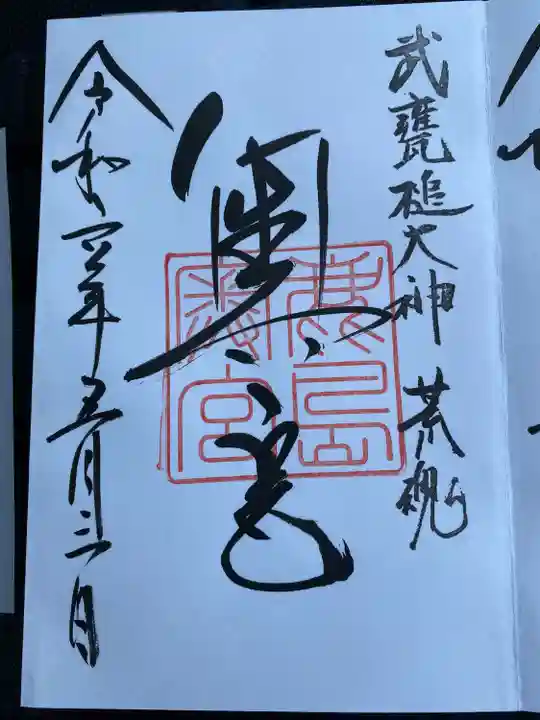 武甕槌大神 荒魂
奥宮
鹿島
奥宮
令和四年五月三日